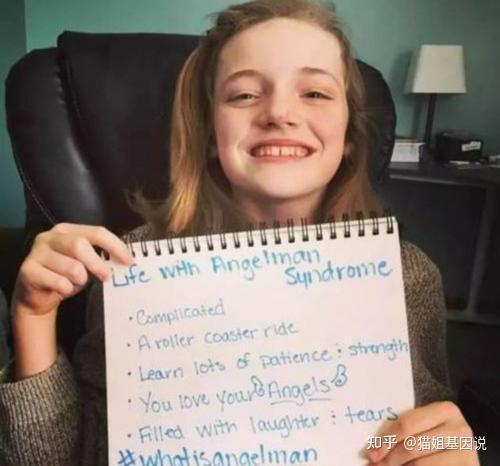 Life with Angelman
Syndrome
• Complicated
• A roller coaster ride
• Learn lots of patience & strength
• You love your Angels
• Filled with laughter & tears
#whatisangelman
知乎 @猫姐基因说